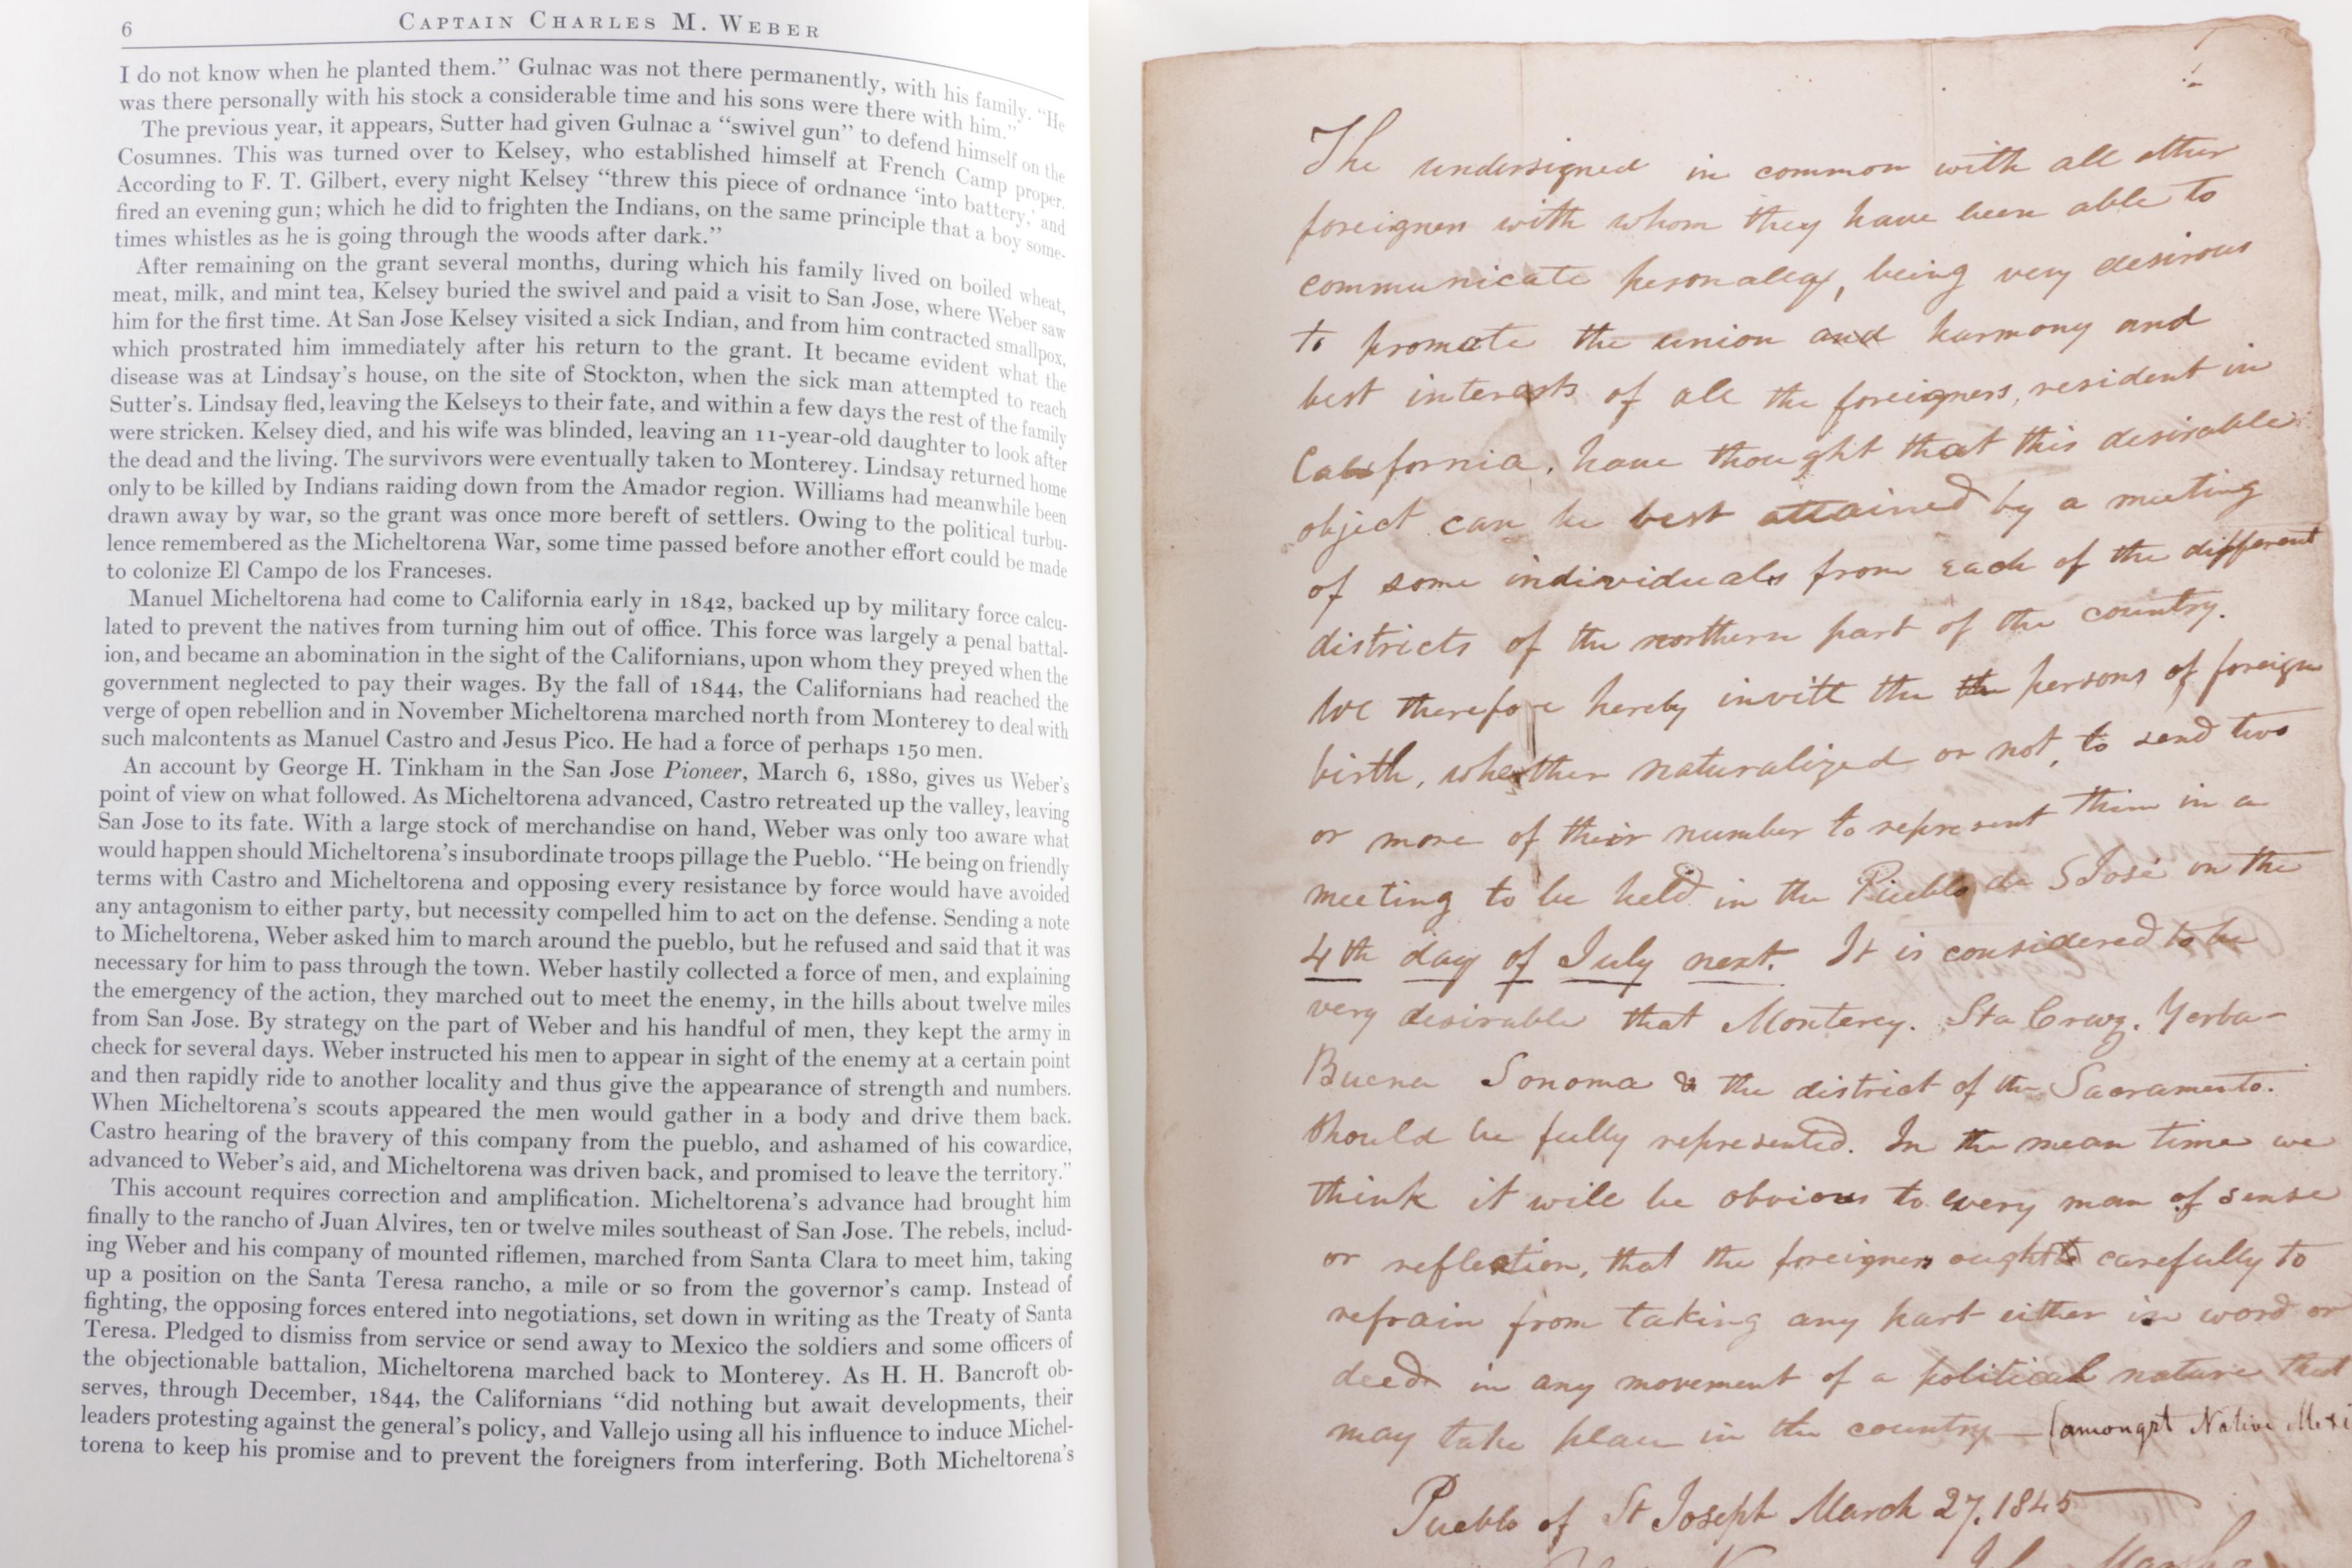 6
CAPTAIN CHARLES M. WEBER
I do not know when he planted them.” Gulnac was not there permanently, with his family. “He
was there personally with his stock a considerable time and his sons were there with him.”
The previous year, it appears, Sutter had given Gulnac a “swivel gun” to defend himself on the
Cosumnes. This was turned over to Kelsey, who established himself at French Camp proper.
According to F. T. Gilbert, every night Kelsey “threw this piece of ordnance ‘into battery,’ and
fired an evening gun; which he did to frighten the Indians, on the same principle that a boy some-
times whistles as he is going through the woods after dark.”
After remaining on the grant several months, during which his family lived on boiled wheat,
meat, milk, and mint tea, Kelsey buried the swivel and paid a visit to San Jose, where Weber saw
him for the first time. At San Jose Kelsey visited a sick Indian, and from him contracted smallpox,
which prostrated him immediately after his return to the grant. It became evident what the
disease was at Lindsay’s house, on the site of Stockton, when the sick man attempted to reach
Sutter’s. Lindsay fled, leaving the Kelseys to their fate, and within a few days the rest of the family
were stricken. Kelsey died, and his wife was blinded, leaving an 11-year-old daughter to look after
the dead and the living. The survivors were eventually taken to Monterey. Lindsay returned home
only to be killed by Indians raiding down from the Amador region. Williams had meanwhile been
drawn away by war, so the grant was once more bereft of settlers. Owing to the political turbu-
lence remembered as the Micheltorena War, some time passed before another effort could be made
to colonize El Campo de los Franceses.
Manuel Micheltorena had come to California early in 1842, backed up by military force calcu-
lated to prevent the natives from turning him out of office. This force was largely a penal battal-
ion, and became an abomination in the sight of the Californians, upon whom they preyed when the
government neglected to pay their wages. By the fall of 1844, the Californians had reached the
verge of open rebellion and in November Micheltorena marched north from Monterey to deal with
such malcontents as Manuel Castro and Jesus Pico. He had a force of perhaps 150 men.
An account by George H. Tinkham in the San Jose Pioneer, March 6, 1880, gives us Weber’s
point of view on what followed. As Micheltorena advanced, Castro retreated up the valley, leaving
San Jose to its fate. With a large stock of merchandise on hand, Weber was only too aware what
would happen should Micheltorena’s insubordinate troops pillage the Pueblo. “He being on friendly
terms with Castro and Micheltorena and opposing every resistance by force would have avoided
any antagonism to either party, but necessity compelled him to act on the defense. Sending a note
to Micheltorena, Weber asked him to march around the pueblo, but he refused and said that it was
necessary for him to pass through the town. Weber hastily collected a force of men, and explaining
the emergency of the action, they marched out to meet the enemy, in the hills about twelve miles
from San Jose. By strategy on the part of Weber and his handful of men, they kept the army in
check for several days. Weber instructed his men to appear in sight of the enemy at a certain point
and then rapidly ride to another locality and thus give the appearance of strength and numbers.
When Micheltorena’s scouts appeared the men would gather in a body and drive them back.
Castro hearing of the bravery of this company from the pueblo, and ashamed of his cowardice,
advanced to Weber’s aid, and Micheltorena was driven back, and promised to leave the territory.”
This account requires correction and amplification. Micheltorena’s advance had brought him
finally to the rancho of Juan Alvires, ten or twelve miles southeast of San Jose. The rebels, includ-
ing Weber and his company of mounted riflemen, marched from Santa Clara to meet him, taking
up a position on the Santa Teresa rancho, a mile or so from the governor’s camp. Instead of
fighting, the opposing forces entered into negotiations, set down in writing as the Treaty of Santa
Teresa. Pledged to dismiss from service or send away to Mexico the soldiers and some officers of
the objectionable battalion, Micheltorena marched back to Monterey. As H. H. Bancroft ob-
serves, through December, 1844, the Californians “did nothing but await developments, their
leaders protesting against the general’s policy, and Vallejo using all his influence to induce Michel-
torena to keep his promise and to prevent the foreigners from interfering. Both Micheltorena’s
The undersigned in common with all other
foreigners with whom they have been able to
communicate personally, being very desirous
to promote the union and harmony and
best interests of all the foreigners, resident in
California, have thought that this desirable
object can be best attained by a meeting
of some individuals from each of the different
districts of the northern part of the country.
We therefore hereby invite the the persons of foreign
birth, whether naturalized or not, to send two
or more of their number to represent them in a
meeting to be held in the Pueblo de S José on the
4th day of July next. It is considered to be
very desirable that Monterey. Sta Cruz. Yerba-
Buena Sonoma & the district of the Sacramento.
should be fully represented. In the mean time we
think it will be obvious to every man of sense
or reflection, that the foreigners ought to carefully to
refrain from taking any part either in word or
deed in any movement of a political nature that
may take place in the country — (amongst Native Mexi
Pueblo of St Joseph March 27, 1845